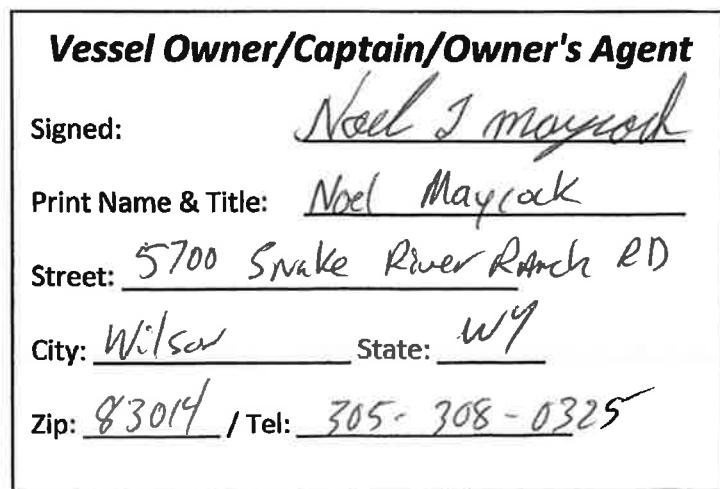 Vessel Owner/Captain/Owner's Agent
Signed: Noel J Maycock
Print Name & Title: Noel Maycock
Street: 5700 Snake River Ranch RD
City: Wilson State: WY
Zip: 83014 / Tel: 305-308-0325